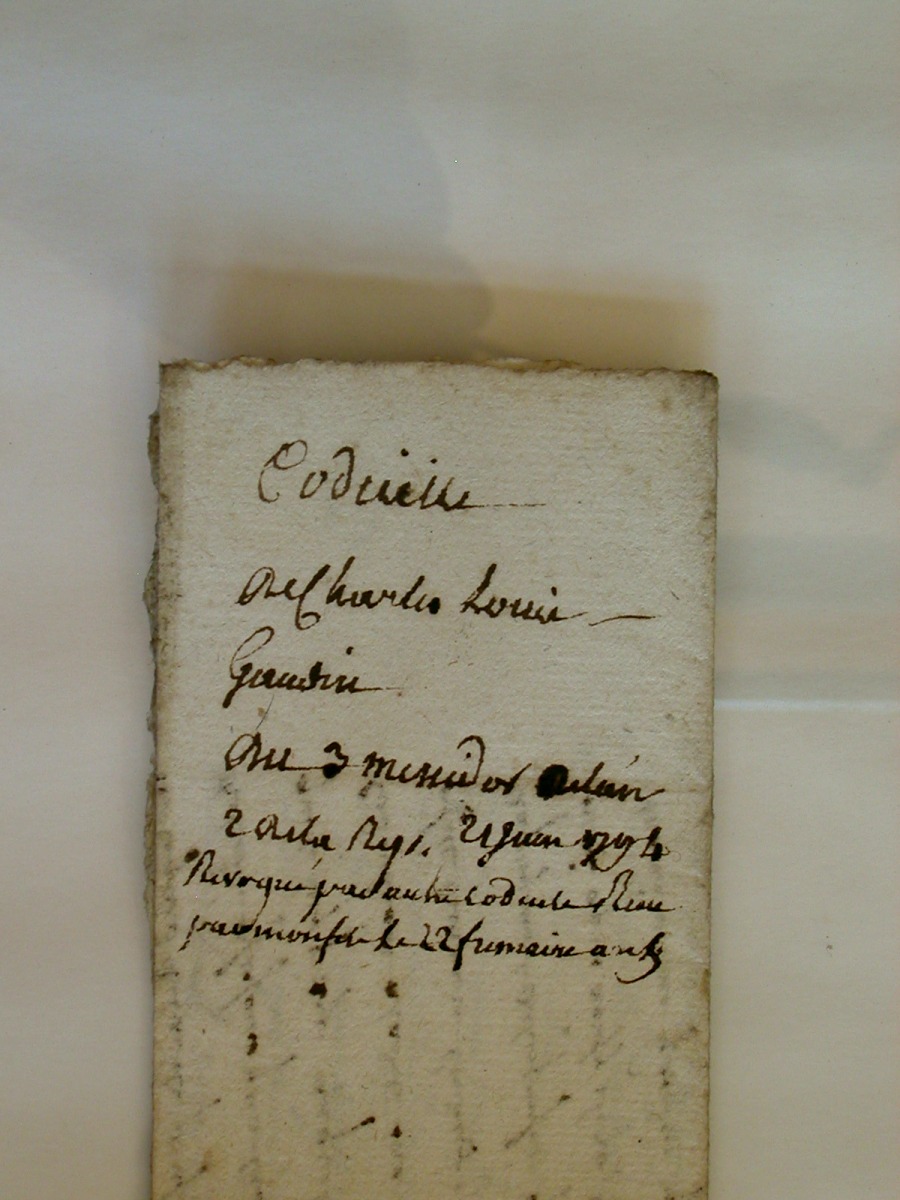 Codicille
De Charles Louis
Gaudin
Du 3 messidor de l'an
2 de la Rep. 21 Juin 1794
Revoqué par autre codicile Recu
par mon fils le 22 frimaire an